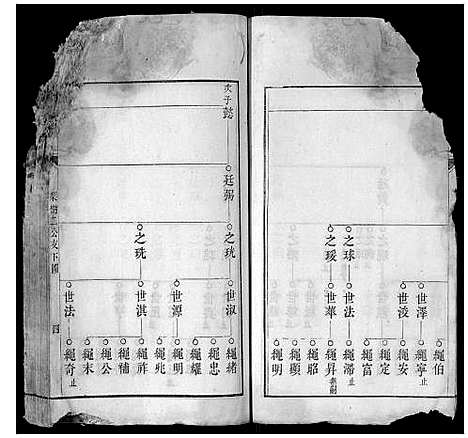 世澤
世淩
繩伯
繩寧止
繩安
繩定
之球
之瑗
世法
世華
繩富
繩滯止
繩昇無嗣
繩昭
繩顯
繩明
次子懿
廷弼
之珖
之珗
世淑
世源
世淇
世法
繩緒
繩忠
繩耀
繩明
繩兆
繩祚
繩補
繩公
繩末
繩奇止
公支下圖
四